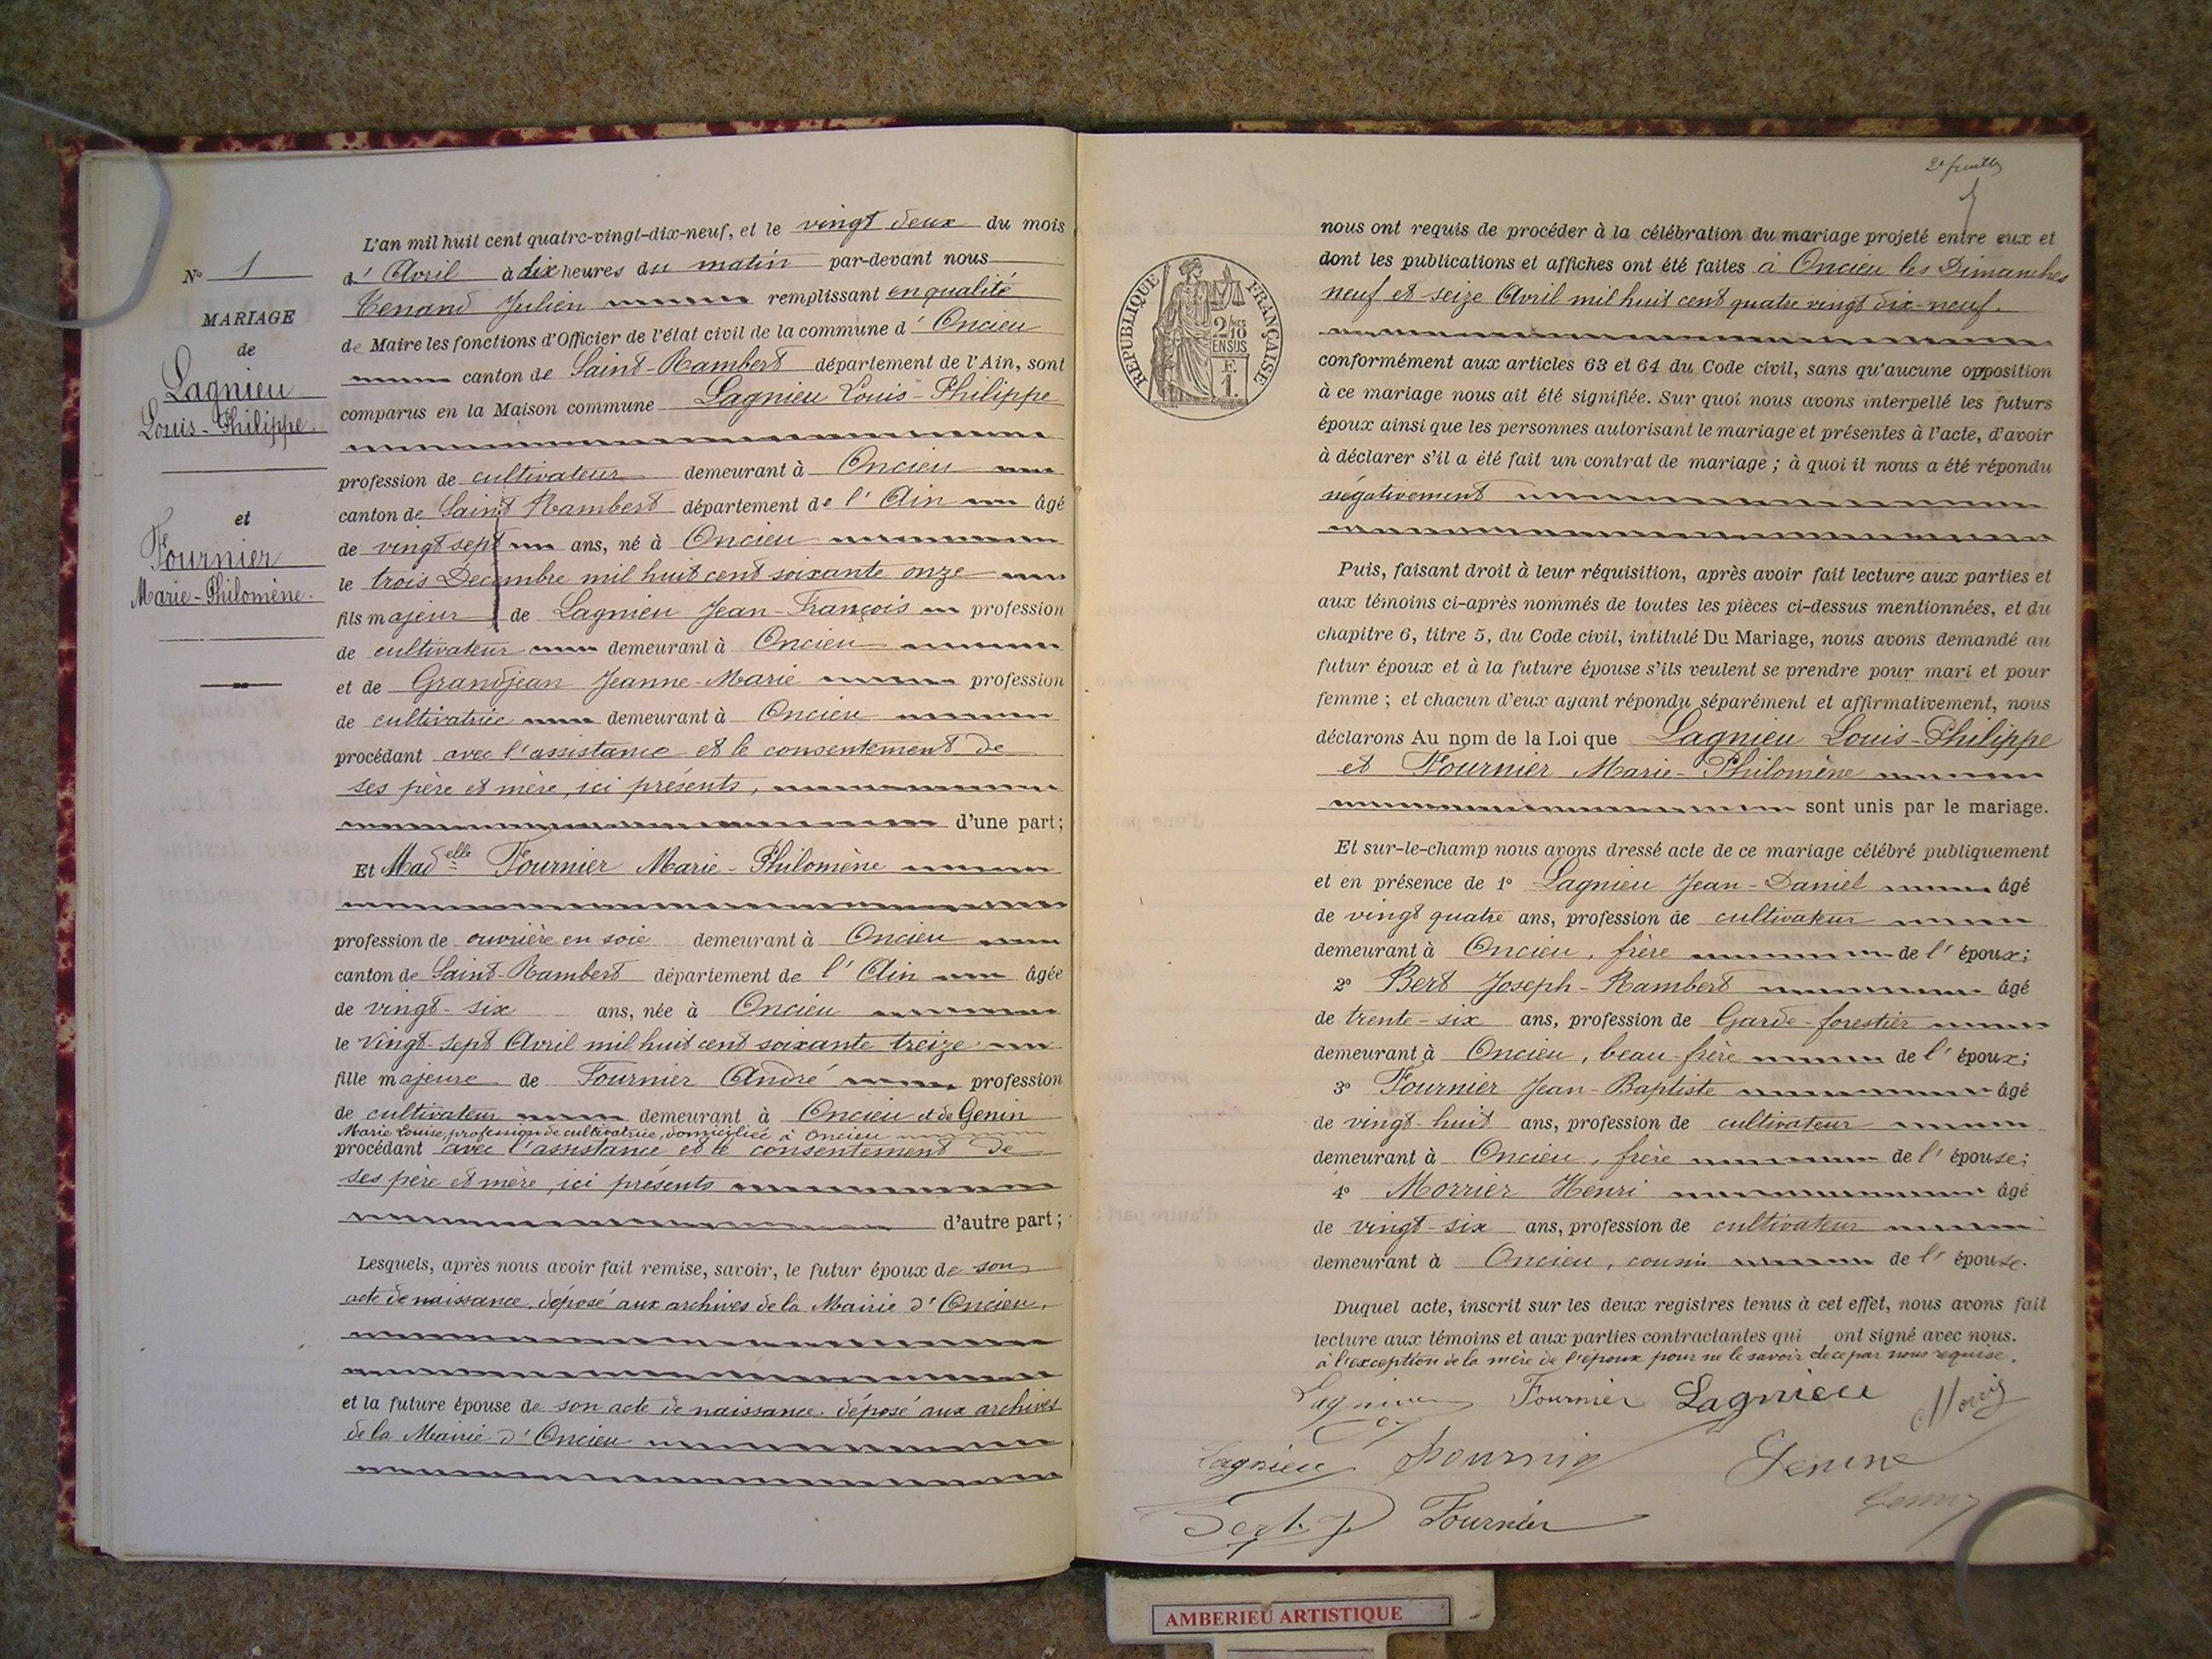 N° 1
MARIAGE
de
Lagnieu
Louis-Philippe.
et
Fournier
Marie-Philomène.
L'an mil huit cent quatre-vingt-dix-neuf, et le vingt deux du mois
d' Avril à dix heures du matin par-devant nous
Tenand Julien remplissant en qualité
de Maire les fonctions d'Officier de l'état civil de la commune d' Oncieu
canton de Saint-Rambert département de l'Ain, sont
comparus en la Maison commune Lagnieu Louis-Philippe
profession de cultivateur demeurant à Oncieu
canton de Saint Rambert département de l' Ain âgé
de vingt sept ans, né à Oncieu
le trois Décembre mil huit cent soixante onze
fils majeur de Lagnieu Jean-François profession
de cultivateur demeurant à Oncieu
et de Grandjean Jeanne-Marie profession
de cultivatrice demeurant à Oncieu
procédant avec l'assistance et le consentement de
ses père et mère, ici présents,
d'une part;
Et Madelle Fournier Marie-Philomène
profession de ouvrière en soie demeurant à Oncieu
canton de Saint-Rambert département de l' Ain âgée
de vingt-six ans, née à Oncieu
le vingt-sept Avril mil huit cent soixante treize
fille majeure de Fournier André profession
de cultivateur demeurant à Oncieu et de Genin
Marie Louise, profession de cultivatrice, domiciliée à Oncieu
procédant avec l'assistance et le consentement de
ses père et mère, ici présents
d'autre part;
Lesquels, après nous avoir fait remise, savoir, le futur époux de son
acte de naissance, déposé aux archives de la Mairie d'Oncieu.
et la future épouse de son acte de naissance. déposé aux archives
de la Mairie d'Oncieu
2e feuillet
RÉPUBLIQUE FRANÇAISE
2/10
EN SUS
F.
1.
nous ont requis de procéder à la célébration du mariage projeté entre eux et
dont les publications et affiches ont été faites à Oncieu les Dimanches
neuf et seize Avril mil huit cent quatre vingt dix-neuf.
conformément aux articles 63 et 64 du Code civil, sans qu'aucune opposition
à ce mariage nous ait été signifiée. Sur quoi nous avons interpellé les futurs
époux ainsi que les personnes autorisant le mariage et présentes à l'acte, d'avoir
à déclarer s'il a été fait un contrat de mariage; à quoi il nous a été répondu
négativement
Puis, faisant droit à leur réquisition, après avoir fait lecture aux parties et
aux témoins ci-après nommés de toutes les pièces ci-dessus mentionnées, et du
chapitre 6, titre 5, du Code civil, intitulé Du Mariage, nous avons demandé au
futur époux et à la future épouse s'ils veulent se prendre pour mari et pour
femme; et chacun d'eux ayant répondu séparément et affirmativement, nous
déclarons Au nom de la Loi que Lagnieu Louis-Philippe
et Fournier Marie-Philomène
sont unis par le mariage.
Et sur-le-champ nous avons dressé acte de ce mariage célébré publiquement
et en présence de 1° Lagnieu Jean-Daniel âgé
de vingt quatre ans, profession de cultivateur
demeurant à Oncieu, frère de l' époux;
2° Bert Joseph-Rambert âgé
de trente-six ans, profession de Garde-forestier
demeurant à Oncieu, beau-frère de l' époux;
3° Fournier Jean-Baptiste âgé
de vingt-huit ans, profession de cultivateur
demeurant à Oncieu, frère de l' épouse;
4° Morrier Henri âgé
de vingt-six ans, profession de cultivateur
demeurant à Oncieu, cousin de l' épouse.
Duquel acte, inscrit sur les deux registres tenus à cet effet, nous avons fait
lecture aux témoins et aux parties contractantes qui ont signé avec nous.
à l'exception de la mère de l'époux pour ne le savoir de ce par nous requise.
Lagnieu Fournier Lagnieu
Lagnieu Fournier
Fournier
AMBERIEU ARTISTIQUE